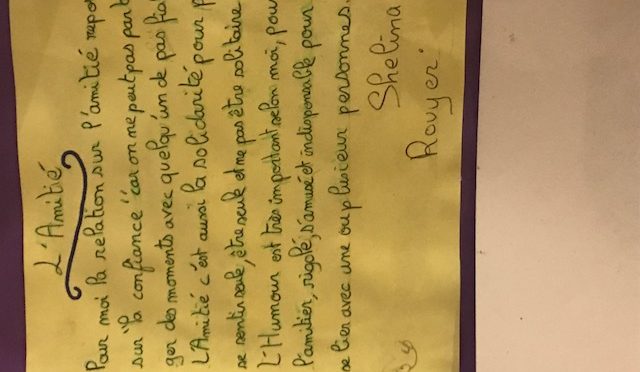 L'Amitié
Pour moi la relation sur l'amitié repo
sur "la confiance" car on ne peut pas part
ger des moments avec quelqu'un de pas fia
L'Amitié c'est aussi la solidarité pour p
se sentir seule, être seule et ne pas être solitaire
L'Humour est très important selon moi, pou
l'amitier, rigolé, s'amusé et indisponsable pour
se lier avec une ou plusieur personnes.
Shelina
Rouyer.